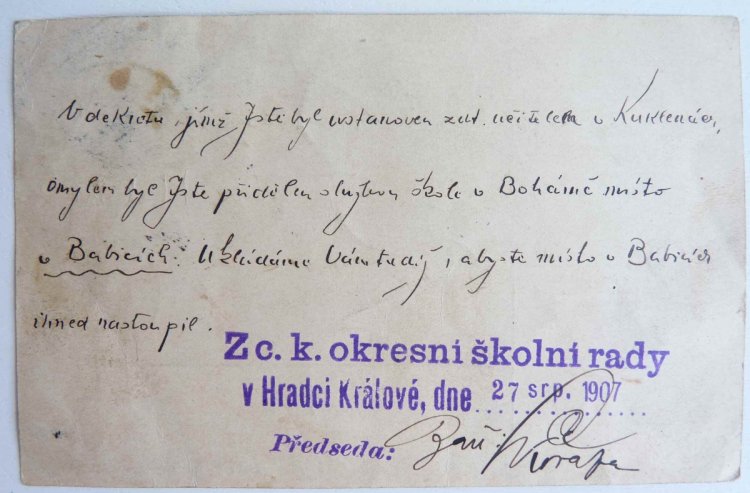 V dekretu, jímž Jste byl ustanoven zat. učitelem v Kuklenách,
omylem byl Jste přidělen službou škole v Boháňce místo
v Babicích. Ukládáme Vám tudíž, abyste místo v Babicích
ihned nastoupil.
Z c. k. okresní školní rady
v Hradci Králové, dne 27 srp. 1907
Předseda: